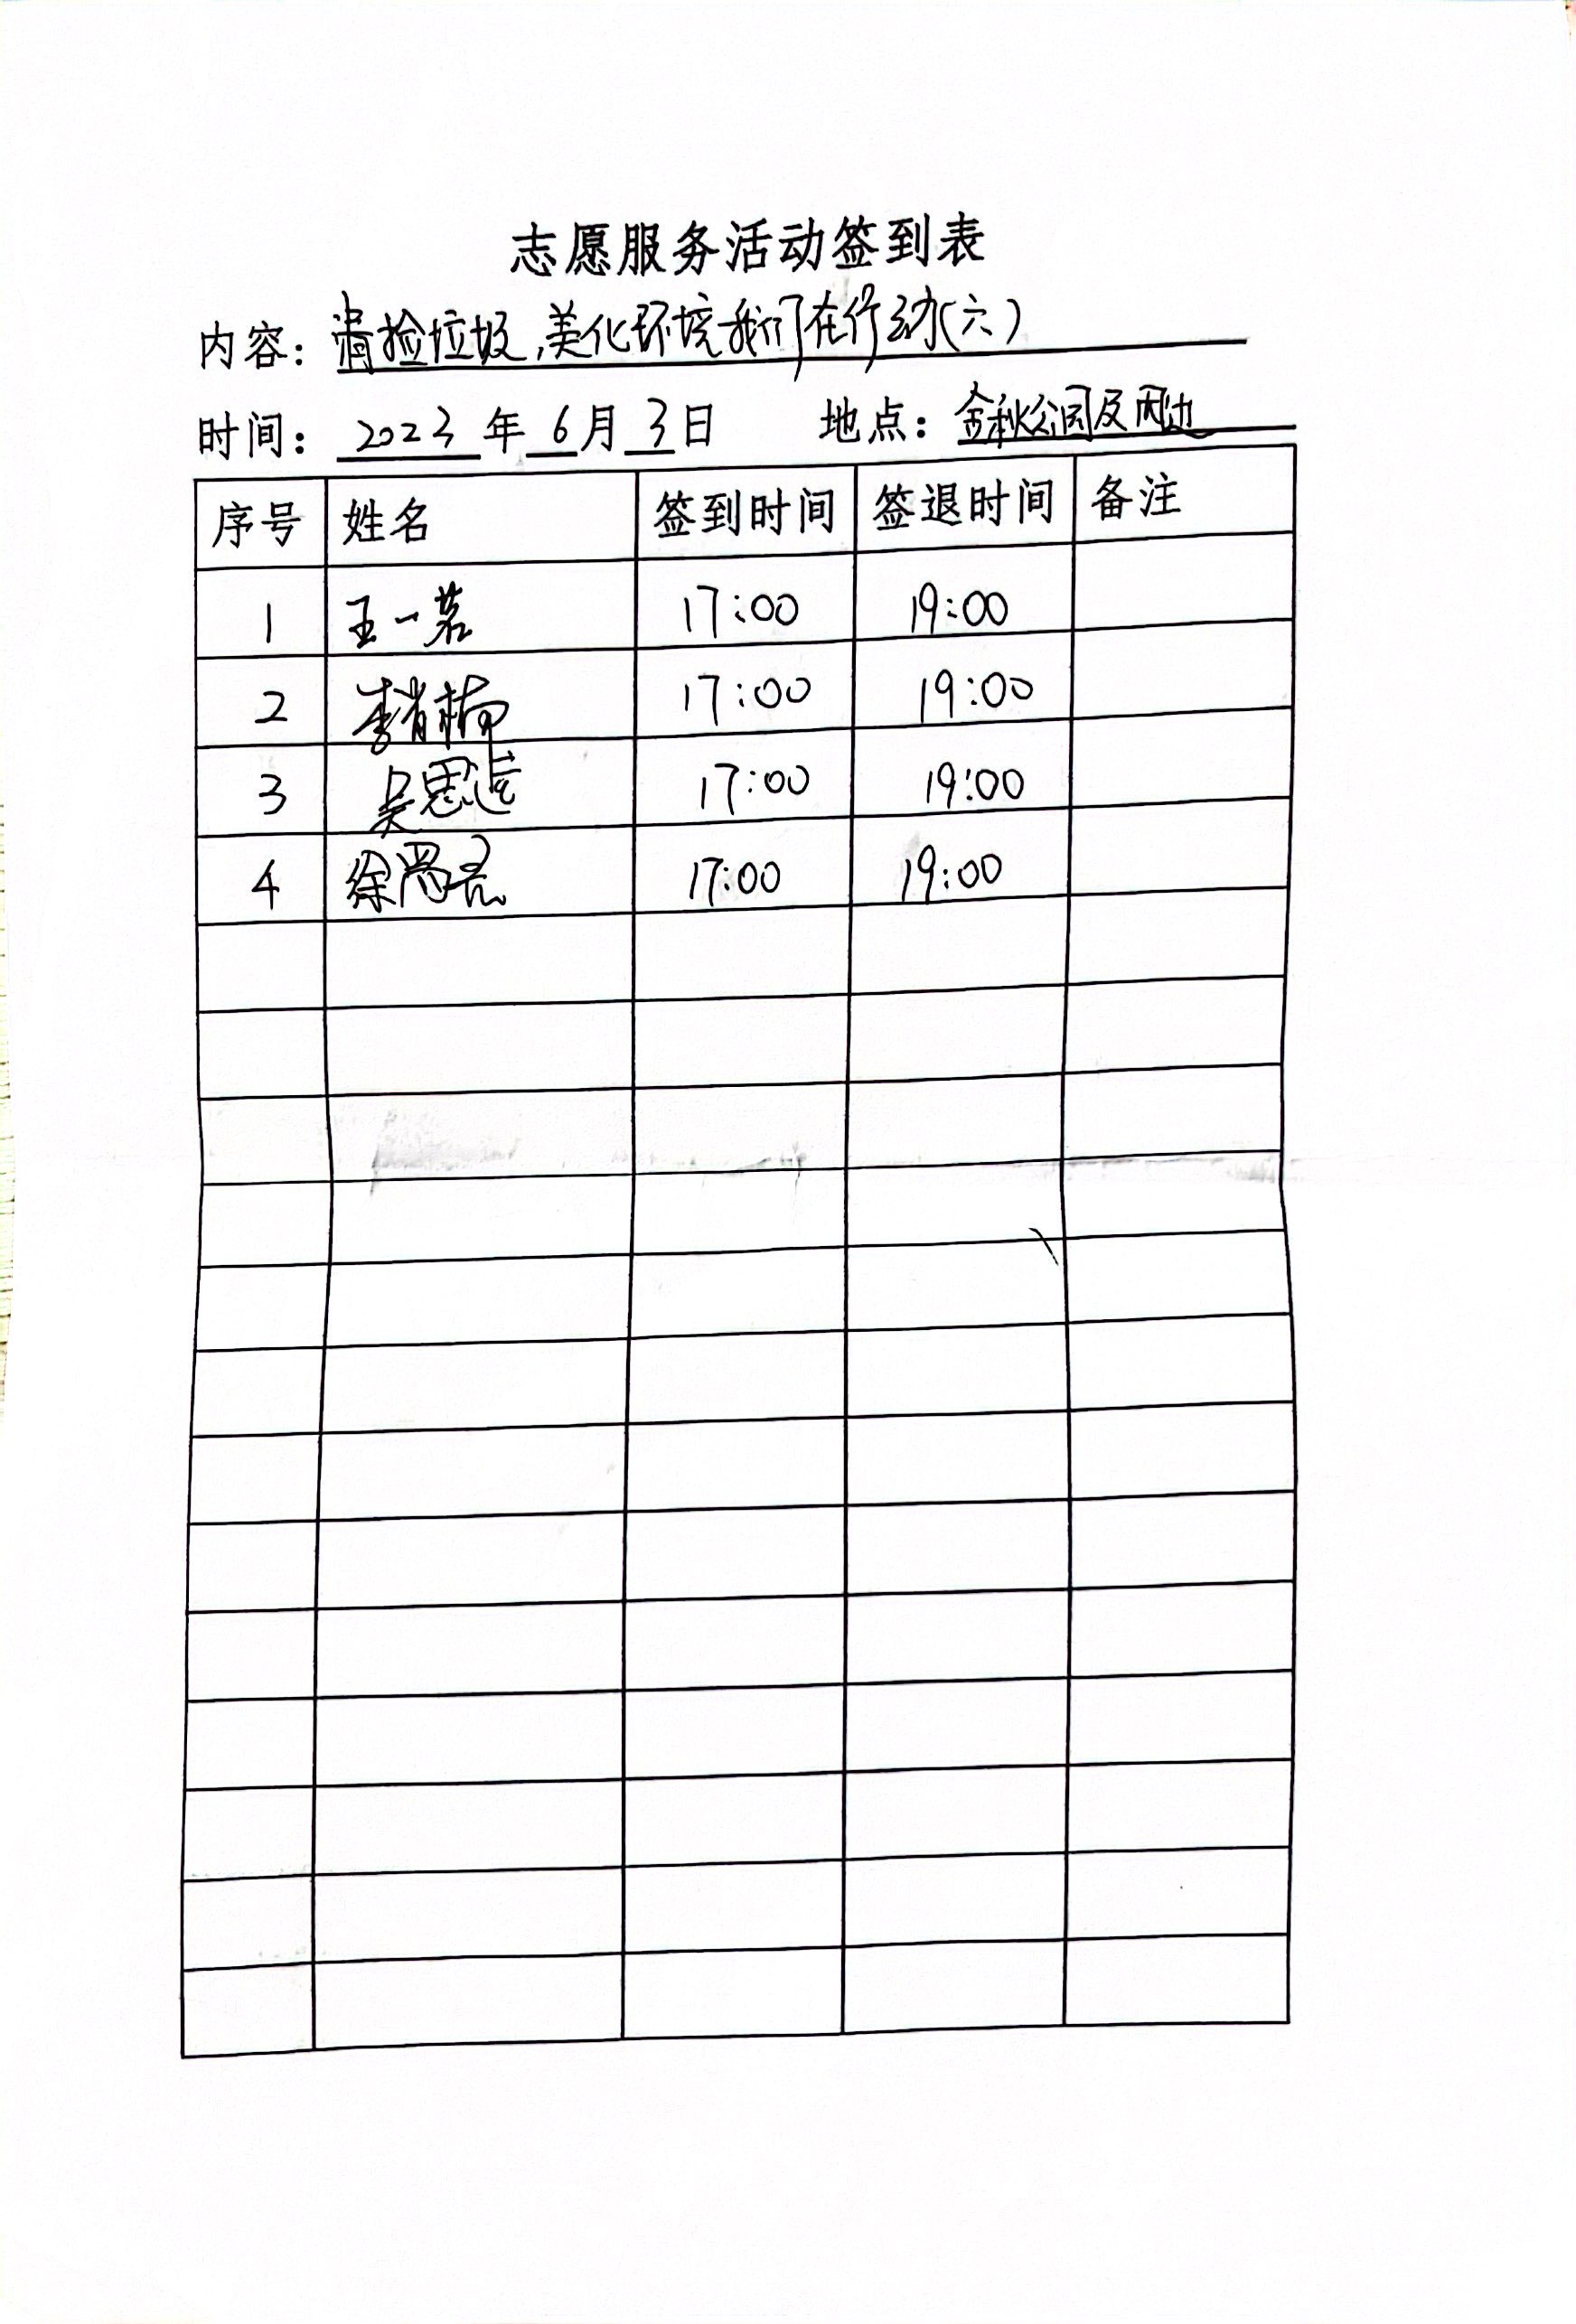 志愿服务活动签到表
内容：清捡垃圾,美化环境我们在行动(六)
时间：2023年6月3日 地点：金秋公园及周边
序号 姓名 签到时间 签退时间 备注
1 王一茗 17:00 19:00
2 李肖楠 17:00 19:00
3 吴思 17:00 19:00
4 徐 17:00 19:00